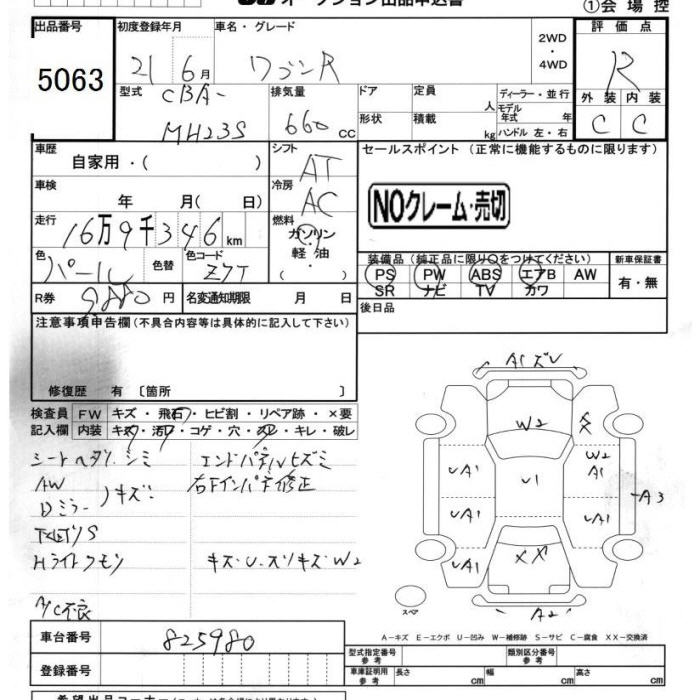 オークション出品申込書
①会場控
出品番号
5063
初度登録年月
21 6月
車名・グレード
ワゴンR
2WD
・
4WD
評価点
R
型式
CBA-
MH23S
排気量
660 cc
ドア
形状
定員
人
積載
kg
ディーラー・並行
モデル
年式
年
ハンドル 左・右
外装 内装
C C
車歴
自家用・( )
シフト
AT
セールスポイント (正常に機能するものに限ります)
車検
年 月( 日)
冷房
AC
NOクレーム・売切
走行
16万9千346km
燃料
ガソリン
・
軽油
( ・ )
色
パール
色替
色コード
Z7T
装備品 (純正品に限り○をつけてください)
PS PW ABS エアB AW
SR ナビ TV カワ
新車保証書
有・無
R券
円
名変通知期限 月 日
後日品
注意事項申告欄 (不具合内容等は具体的に記入して下さい)
修復歴 有 〔箇所 〕
検査員
記入欄
FW キズ・飛石・ヒビ割・リペア跡・×要
内装 キズ・汚レ・コゲ・穴・スレ・キレ・破レ
シートヘタリ、シミ
AW
Dミラー
キズ
Hライトクモリ
A/C不良
エンドパネルヒズミ
右Fインパネ修正
キズ・U・スリキズ・W2
A1キズU
W2
X
UA1
U1
W2
A1
A3
UA1
UA1
UA1
XX
A2
スペア
A-キズ E-エクボ U-凹み W-補修跡 S-サビ C-腐食 XX-交換済
車台番号
825980
登録番号
型式指定番号
参考
類別区分番号
参考
車庫証明用
参考
長さ cm 幅 cm 高さ cm